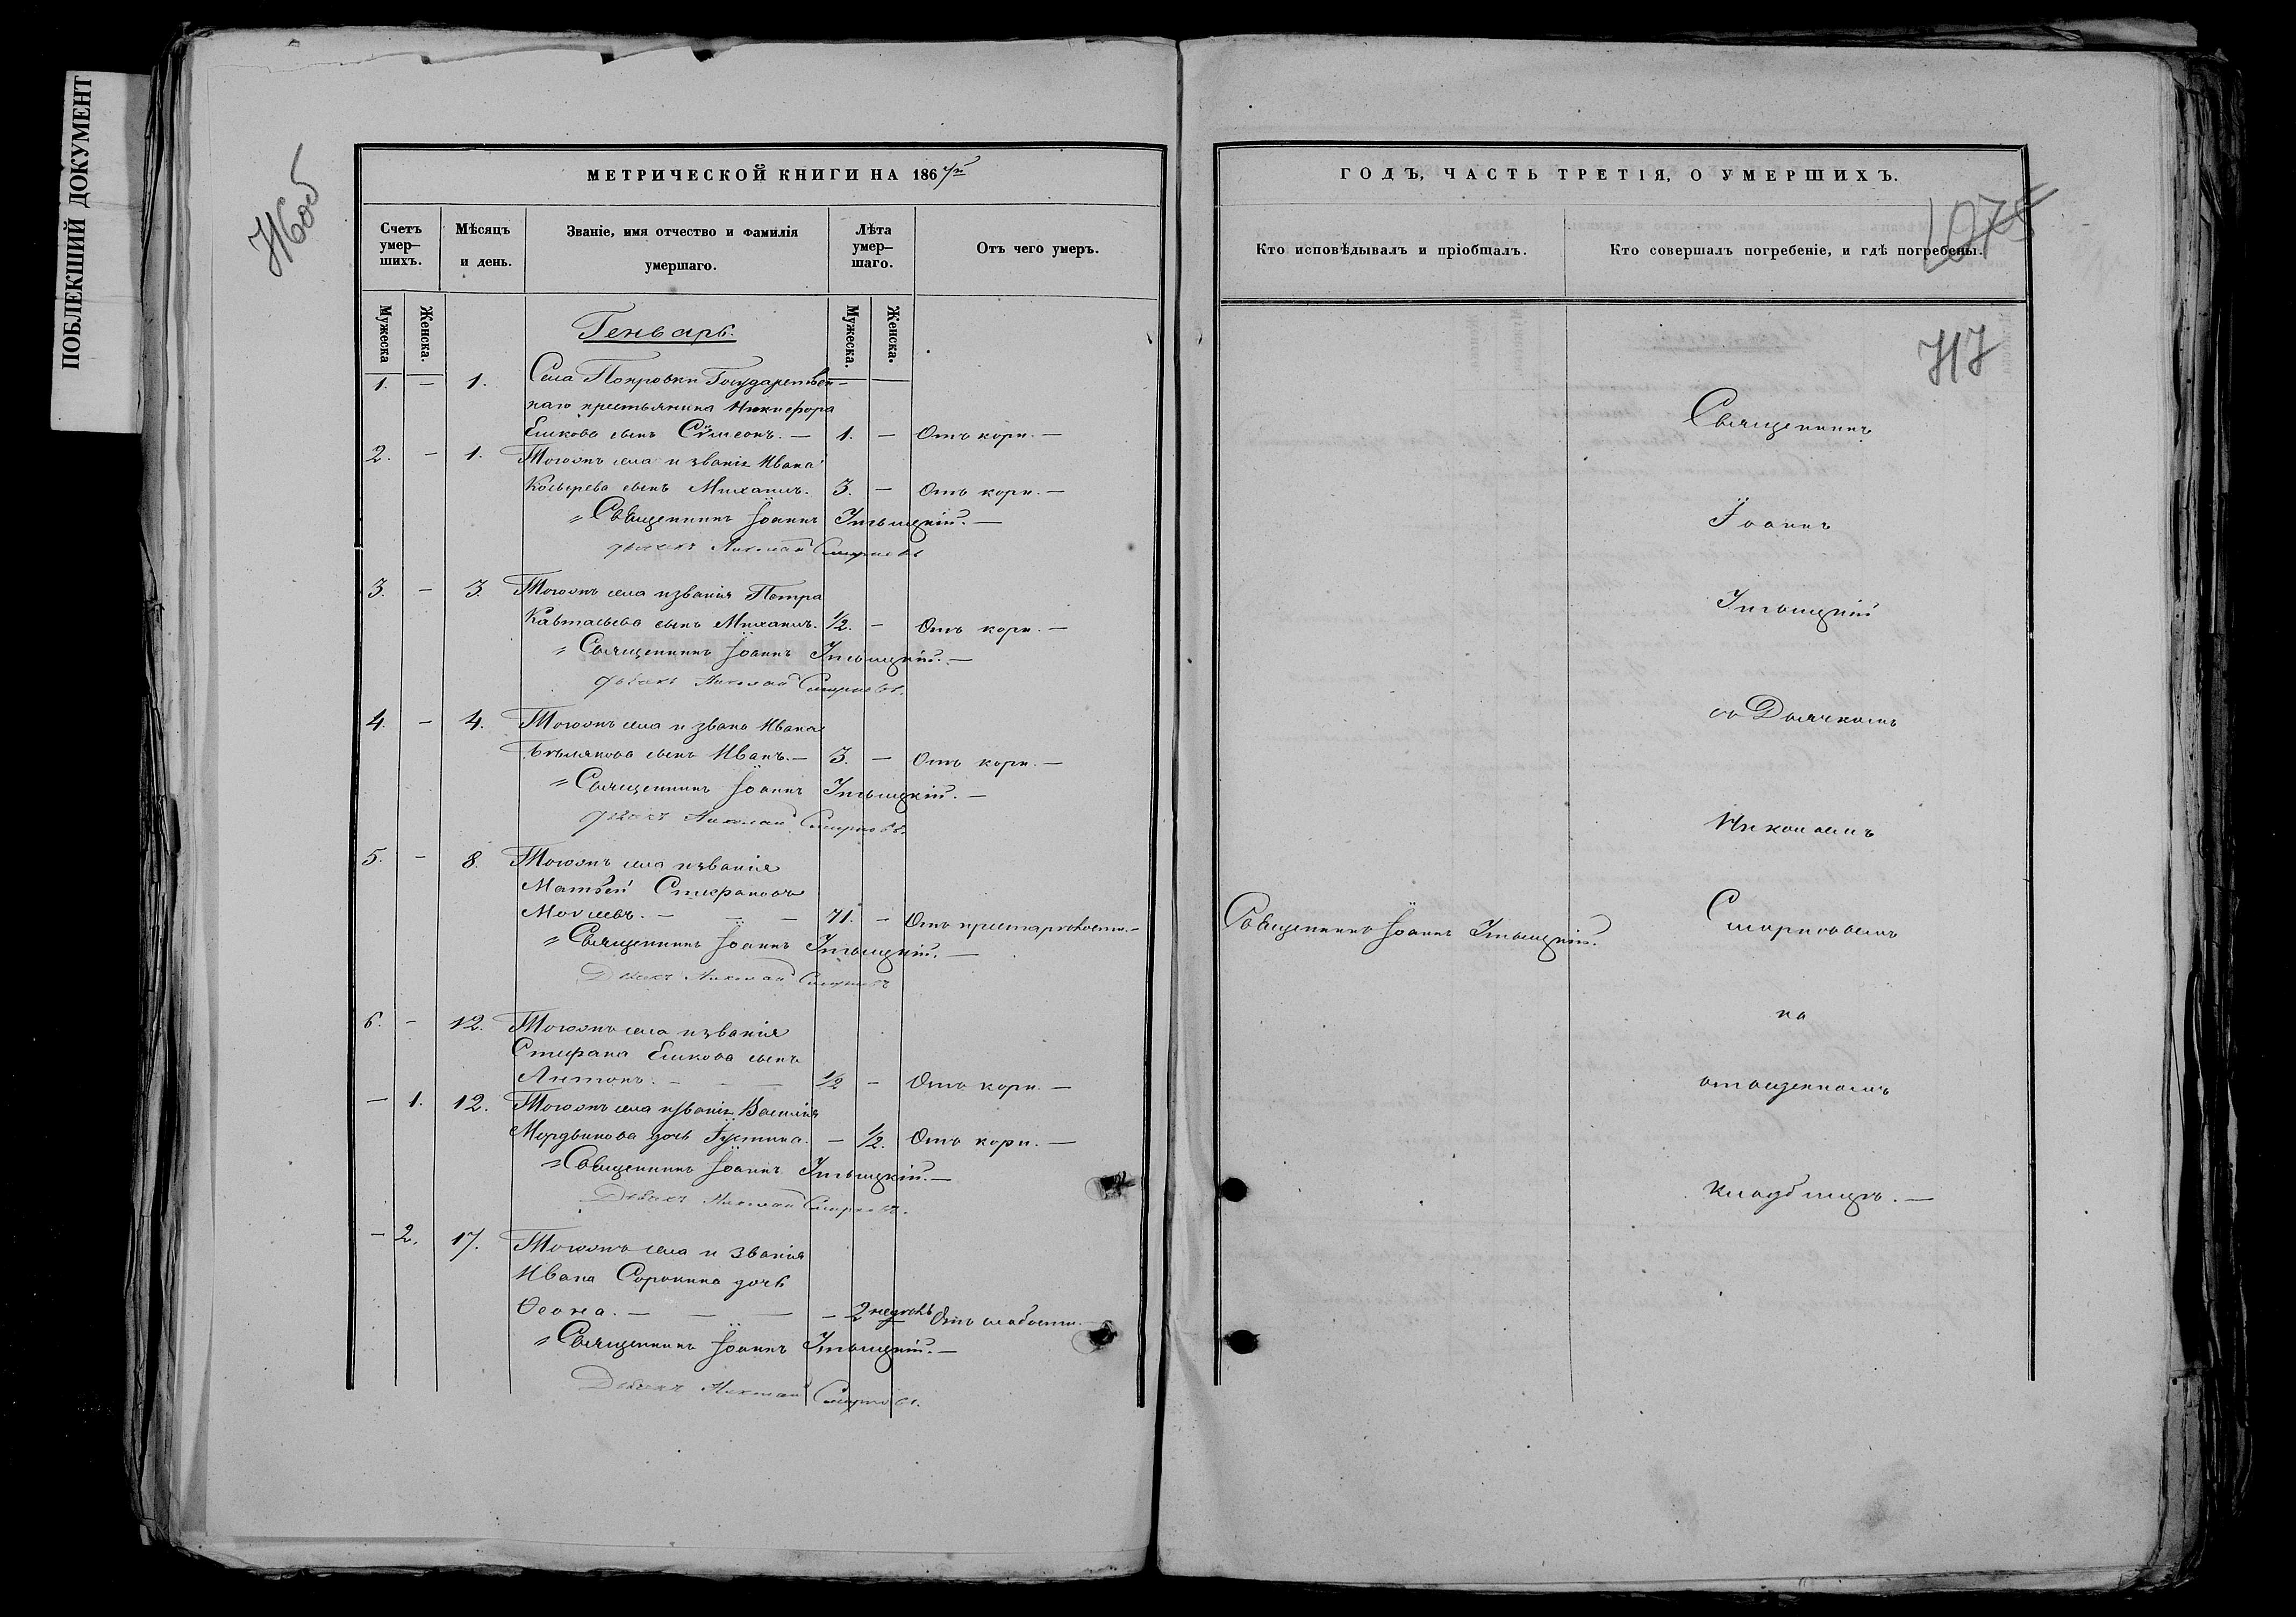 ПОБЛЕКШИЙ ДОКУМЕНТ
МЕТРИЧЕСКОЙ КНИГИ НА 1867й
Счетъ умер–шихъ.
Мѣсяцъ и день.
Званіе, имя отчество и фамилія умершаго.
Лѣта умер–шаго.
Отъ чего умеръ.
Мужеска
Женска.
Мужеска.
Женска.
Генварь.
1. — 1. Села Покровки Государствен–
наго крестьянина Никифора
Ешкова сынъ Сѵмеонъ. — 1. — Отъ кори. —
2. — 1. Тогожъ села и званія Ивана
Косырева сынъ Михаилъ. 3. — Отъ кори. —
„ Священникъ Іоаннъ —
дьячекъ Николай Смирновъ
3. — 3. Тогожъ села и званія Петра
сынъ Михаилъ. 1/2. — Отъ кори. —
„ Священникъ Іоаннъ —
дьячекъ Николай Смирновъ.
4. — 4. Тогожъ села и званія Ивана
Бѣлякова сынъ Иванъ. — 3. — Отъ кори. —
„ Священникъ Іоаннъ —
дьячекъ Николай Смирновъ.
5. — 8. Тогожъ села и званія
Матвей Стефановъ
— — — 71. — Отъ престарѣлости. —
„ Священникъ Іоаннъ —
Дьячекъ Николай Смирновъ
6. — 12. Тогожъ села и званія
Стефана Ешкова сынъ
Антонъ. — — 1/2 — Отъ кори. —
— 1. 12. Тогожъ села и званія Василія
Мордвинова дочь Іустина. — 1/2. Отъ кори. —
„ Священникъ Іоаннъ —
Дьячекъ Николай Смирновъ.
— 2. 17. Тогожъ села и званія
Ивана Сорокина дочь
— — — — 2 недѣль Отъ слабости.
„ Священникъ Іоаннъ —
Дьячекъ Николай Смирновъ.
ГОДЪ, ЧАСТЬ ТРЕТІЯ, О УМЕРШИХЪ.
1075
Кто исповѣдывалъ и пріобщалъ.
Кто совершалъ погребеніе, и гдѣ погребены.
717
Священникъ
Іоаннъ
съ Дьячкомъ
Николаемъ
Священникъ Іоаннъ
Смирновымъ
на
отведенномъ
кладбищѣ. —